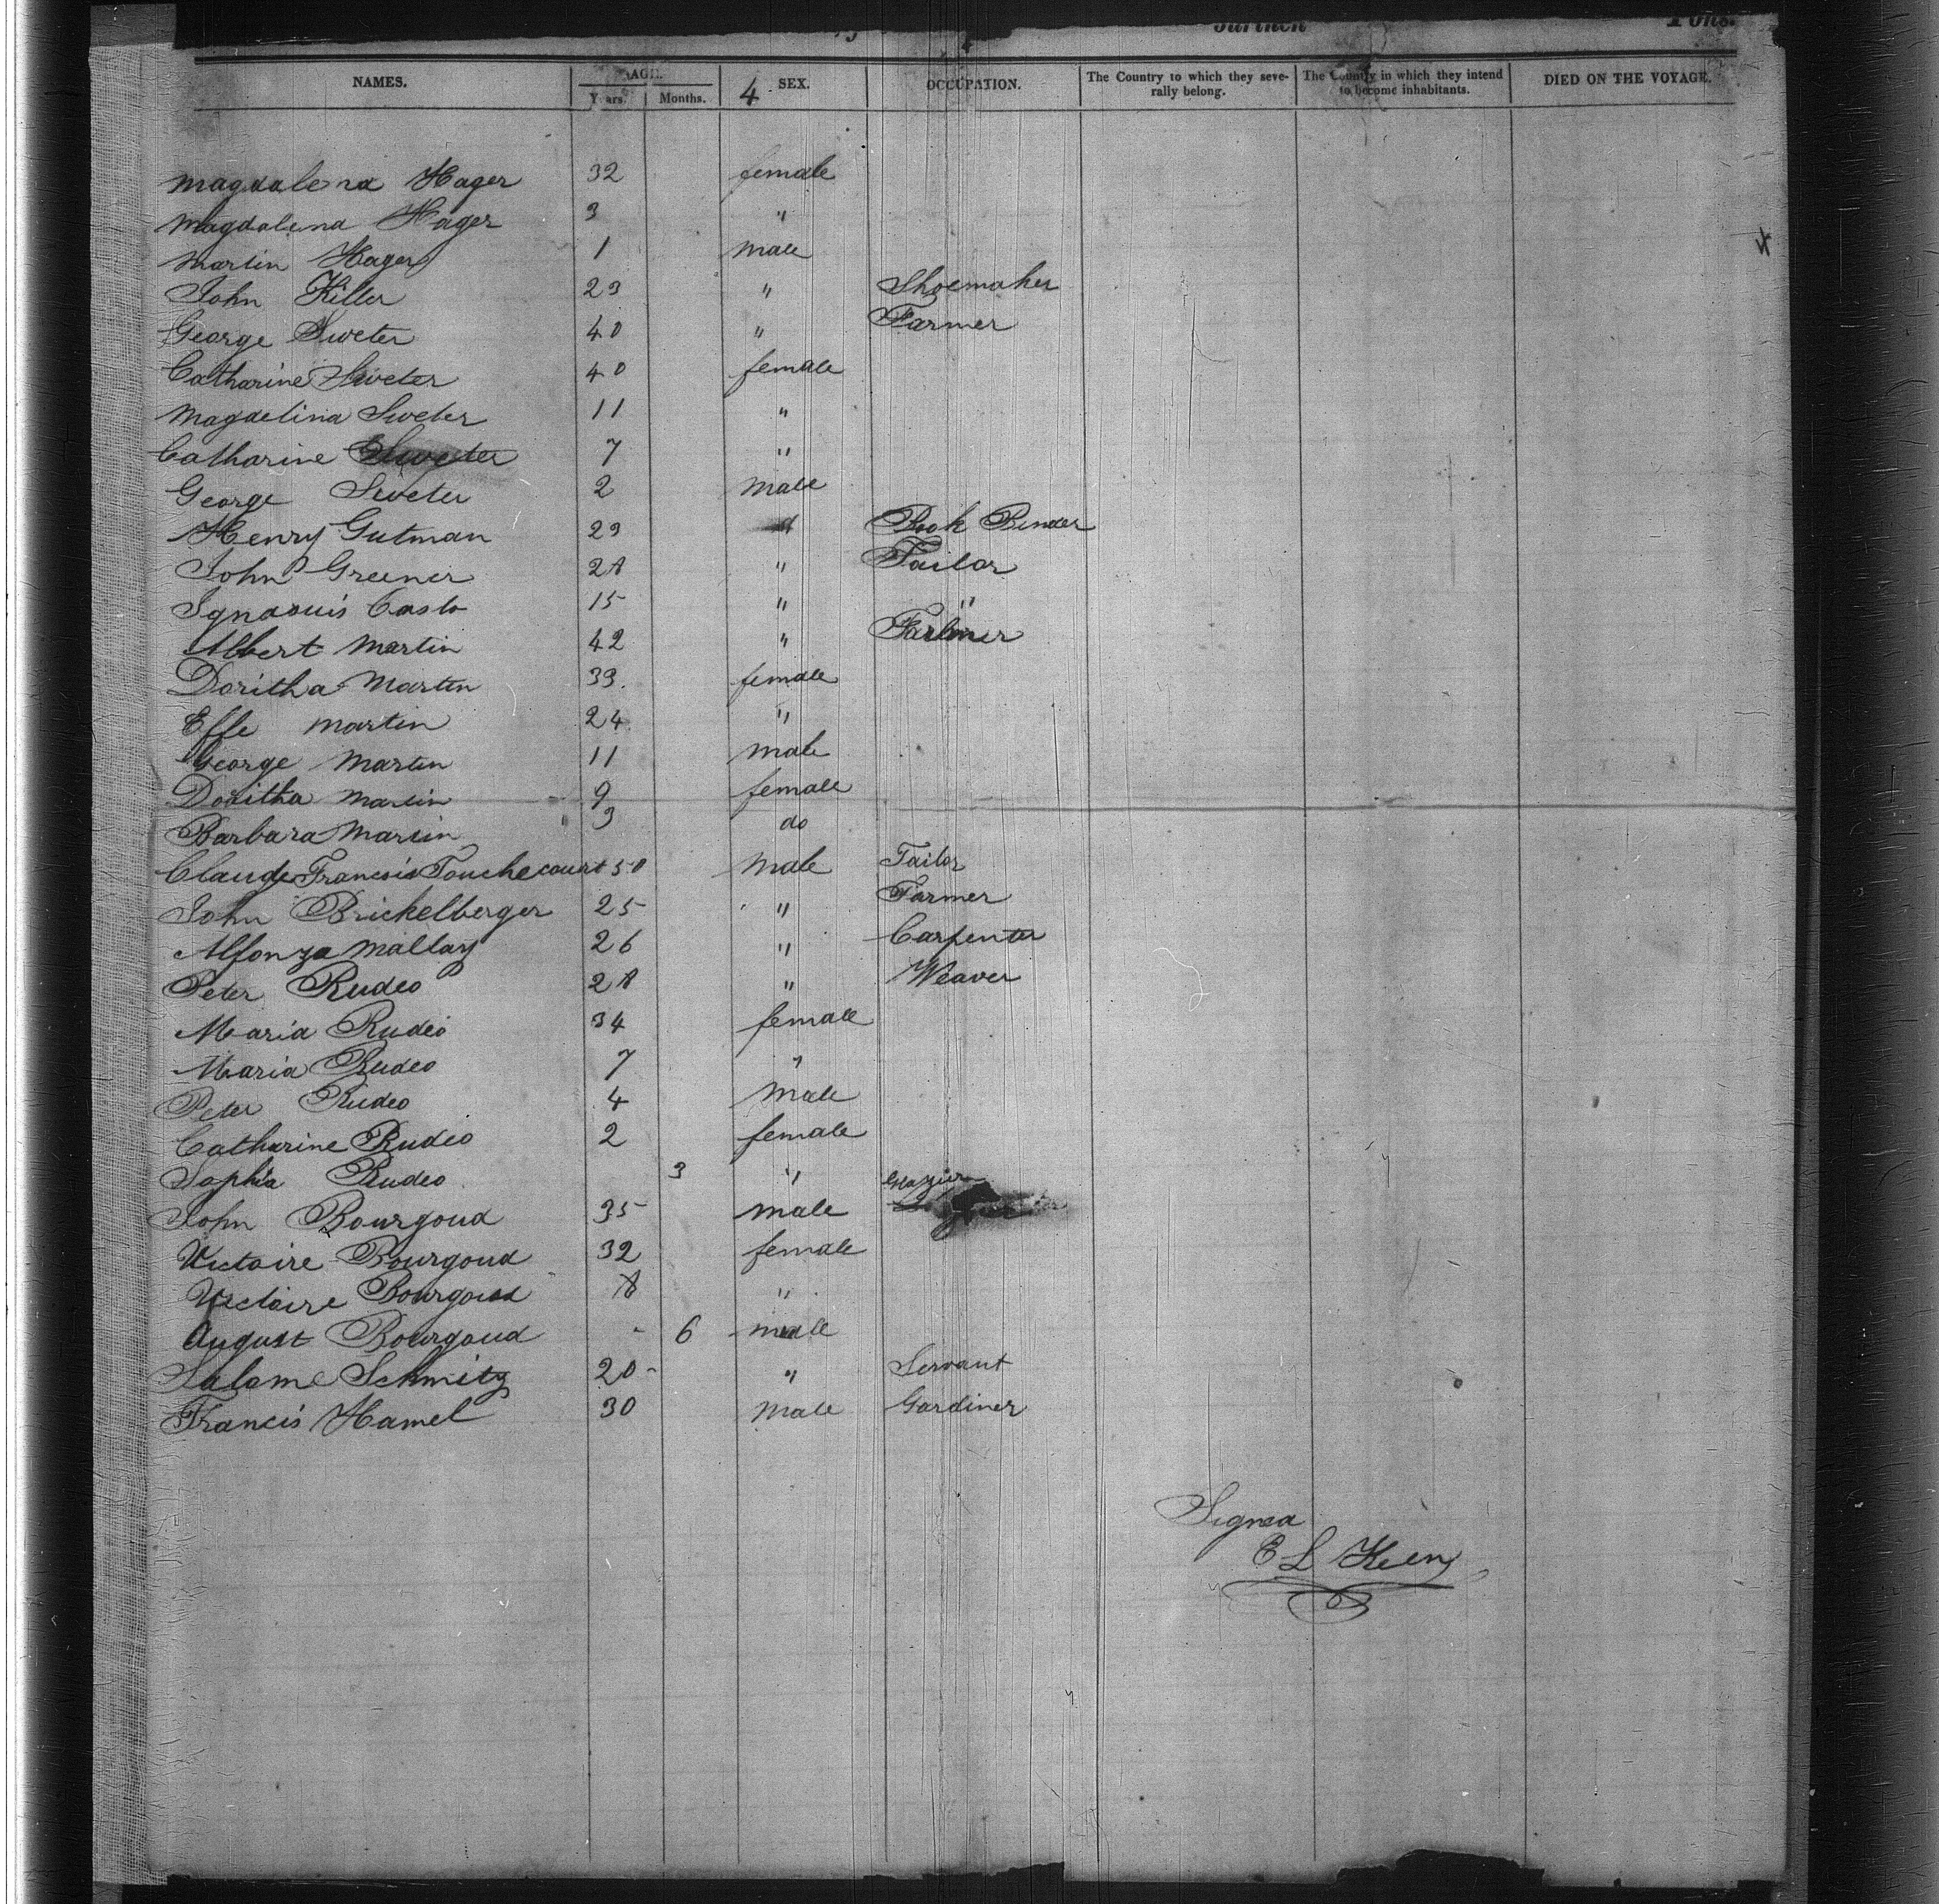 Burthen Tons.
NAMES. AGE. SEX. OCCUPATION. The Country to which they seve- The Country in which they intend DIED ON THE VOYAGE.
Years. Months. 4 rally belong. to become inhabitants.
Magdalena Hager 32 female
Magdalena Hager 3 "
Martin Hager 1 male
John Killer 23 " Shoemaker
George Sweter 40 " Farmer
Catharine Sweter 40 female
Magdelina Sweter 11 "
Catharine Sweter 7 "
George Sweter 2 male
Henry Gutman 23 Book Binder
John Greener 28 " Tailor
Casto 15 " "
Albert Martin 42 " Farmer
Doritha Martin 33. female
Effe Martin 24 "
George Martin 11 male
Doritha Martin 9 female
Barbara Martin 3 do
Claude Francois Touchecourt 50 male Tailor
John Brickelberger 25 " Farmer
Alfonza Mallay 26 " Carpenter
Peter Rudeo 28 " Weaver
Maria Rudeo 34 female
Maria Rudeo 7 "
Peter Rudeo 4 male
Catharine Rudeo 2 female
Sophia Rudeo 3 "
John Bourgoud 35 male Glazier
Victoire Bourgoud 32 female
Victoire Bourgoud 8 "
August Bourgoud - 6 male
Salome Schmitz 20 " Servant
Francis Hamel 30 male Gardiner
Signed
E L Keen